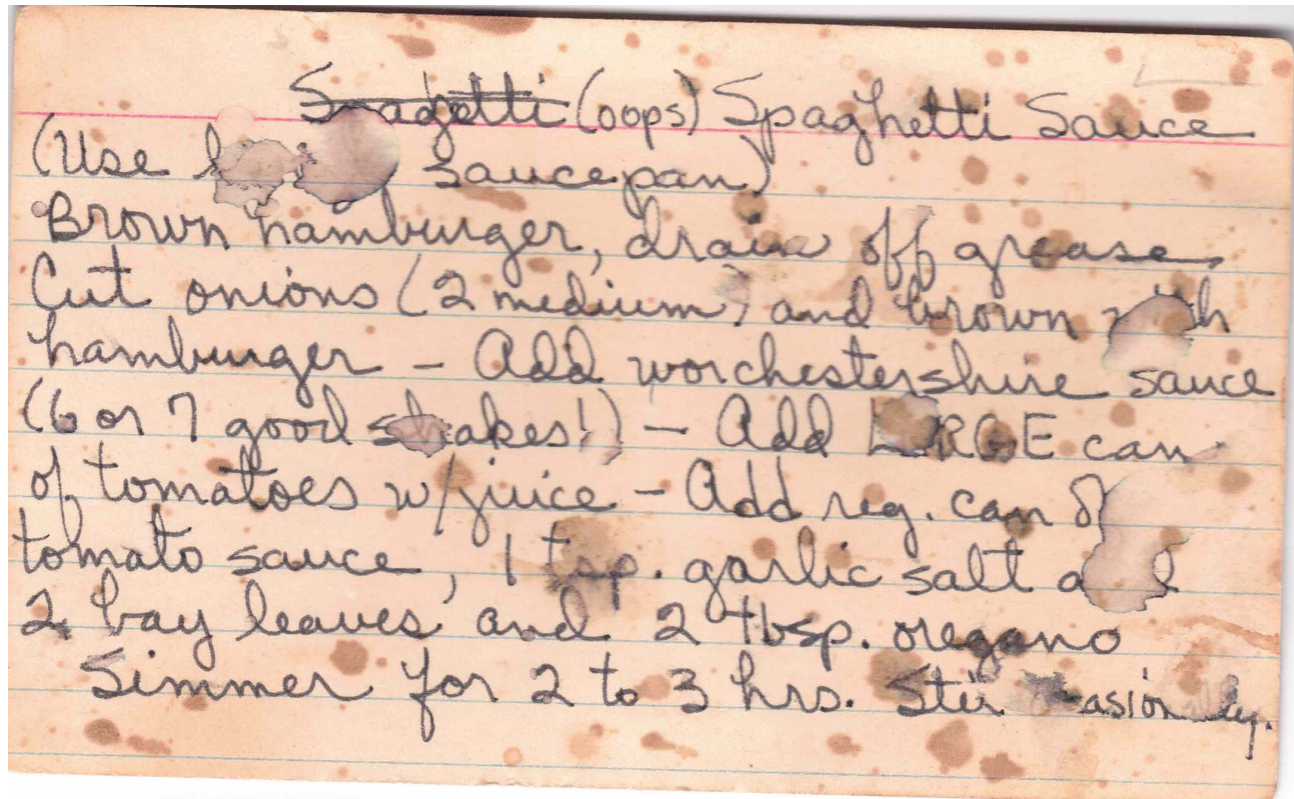 Spagetti (oops) Spaghetti Sauce
(Use saucepan)
Brown hamburger, drain off grease
Cut onions (2 medium) and brown with
hamburger - Add worchestershire sauce
(6 or 7 good shakes!) - Add LARGE can
of tomatoes w/juice - Add reg. can of
tomato sauce, 1 tsp. garlic salt and
2 bay leaves and 2 tbsp. oregano
Simmer for 2 to 3 hrs. Stir occasionally.